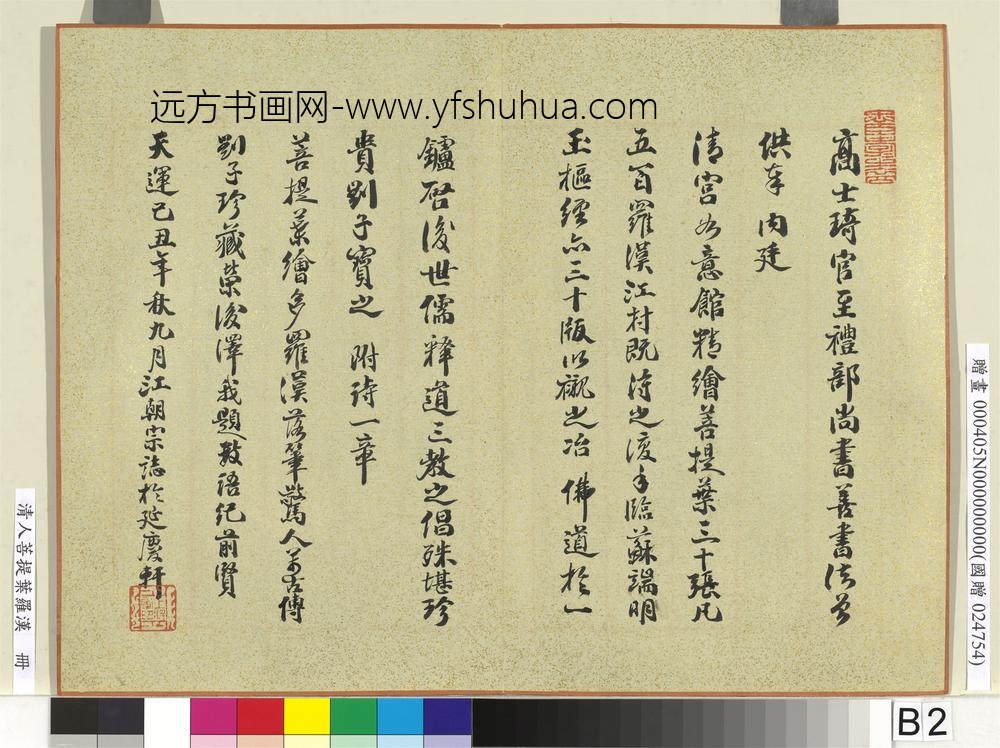 远方书画网-www.yfshuhua.com
高士琦官至禮部尚書善書法曾
供奉 内廷
清宮如意館精繪菩提葉三十張凡
五百羅漢江村既得之復手臨蘇端明
玉樞經亦三十版以襯之冶 佛道於一
鑪啓後世儒釋道三教之倡殊堪珍
貴劉子寶之 附詩一章
菩提葉繪多羅漢落筆驚人萬古傳
劉子珍藏榮後澤我題數語紀前賢
天運己丑年秋九月江朝宗誌於延慶軒
贈畫 000405N000000000(國贈 024754)
清人菩提葉羅漢 冊
B2